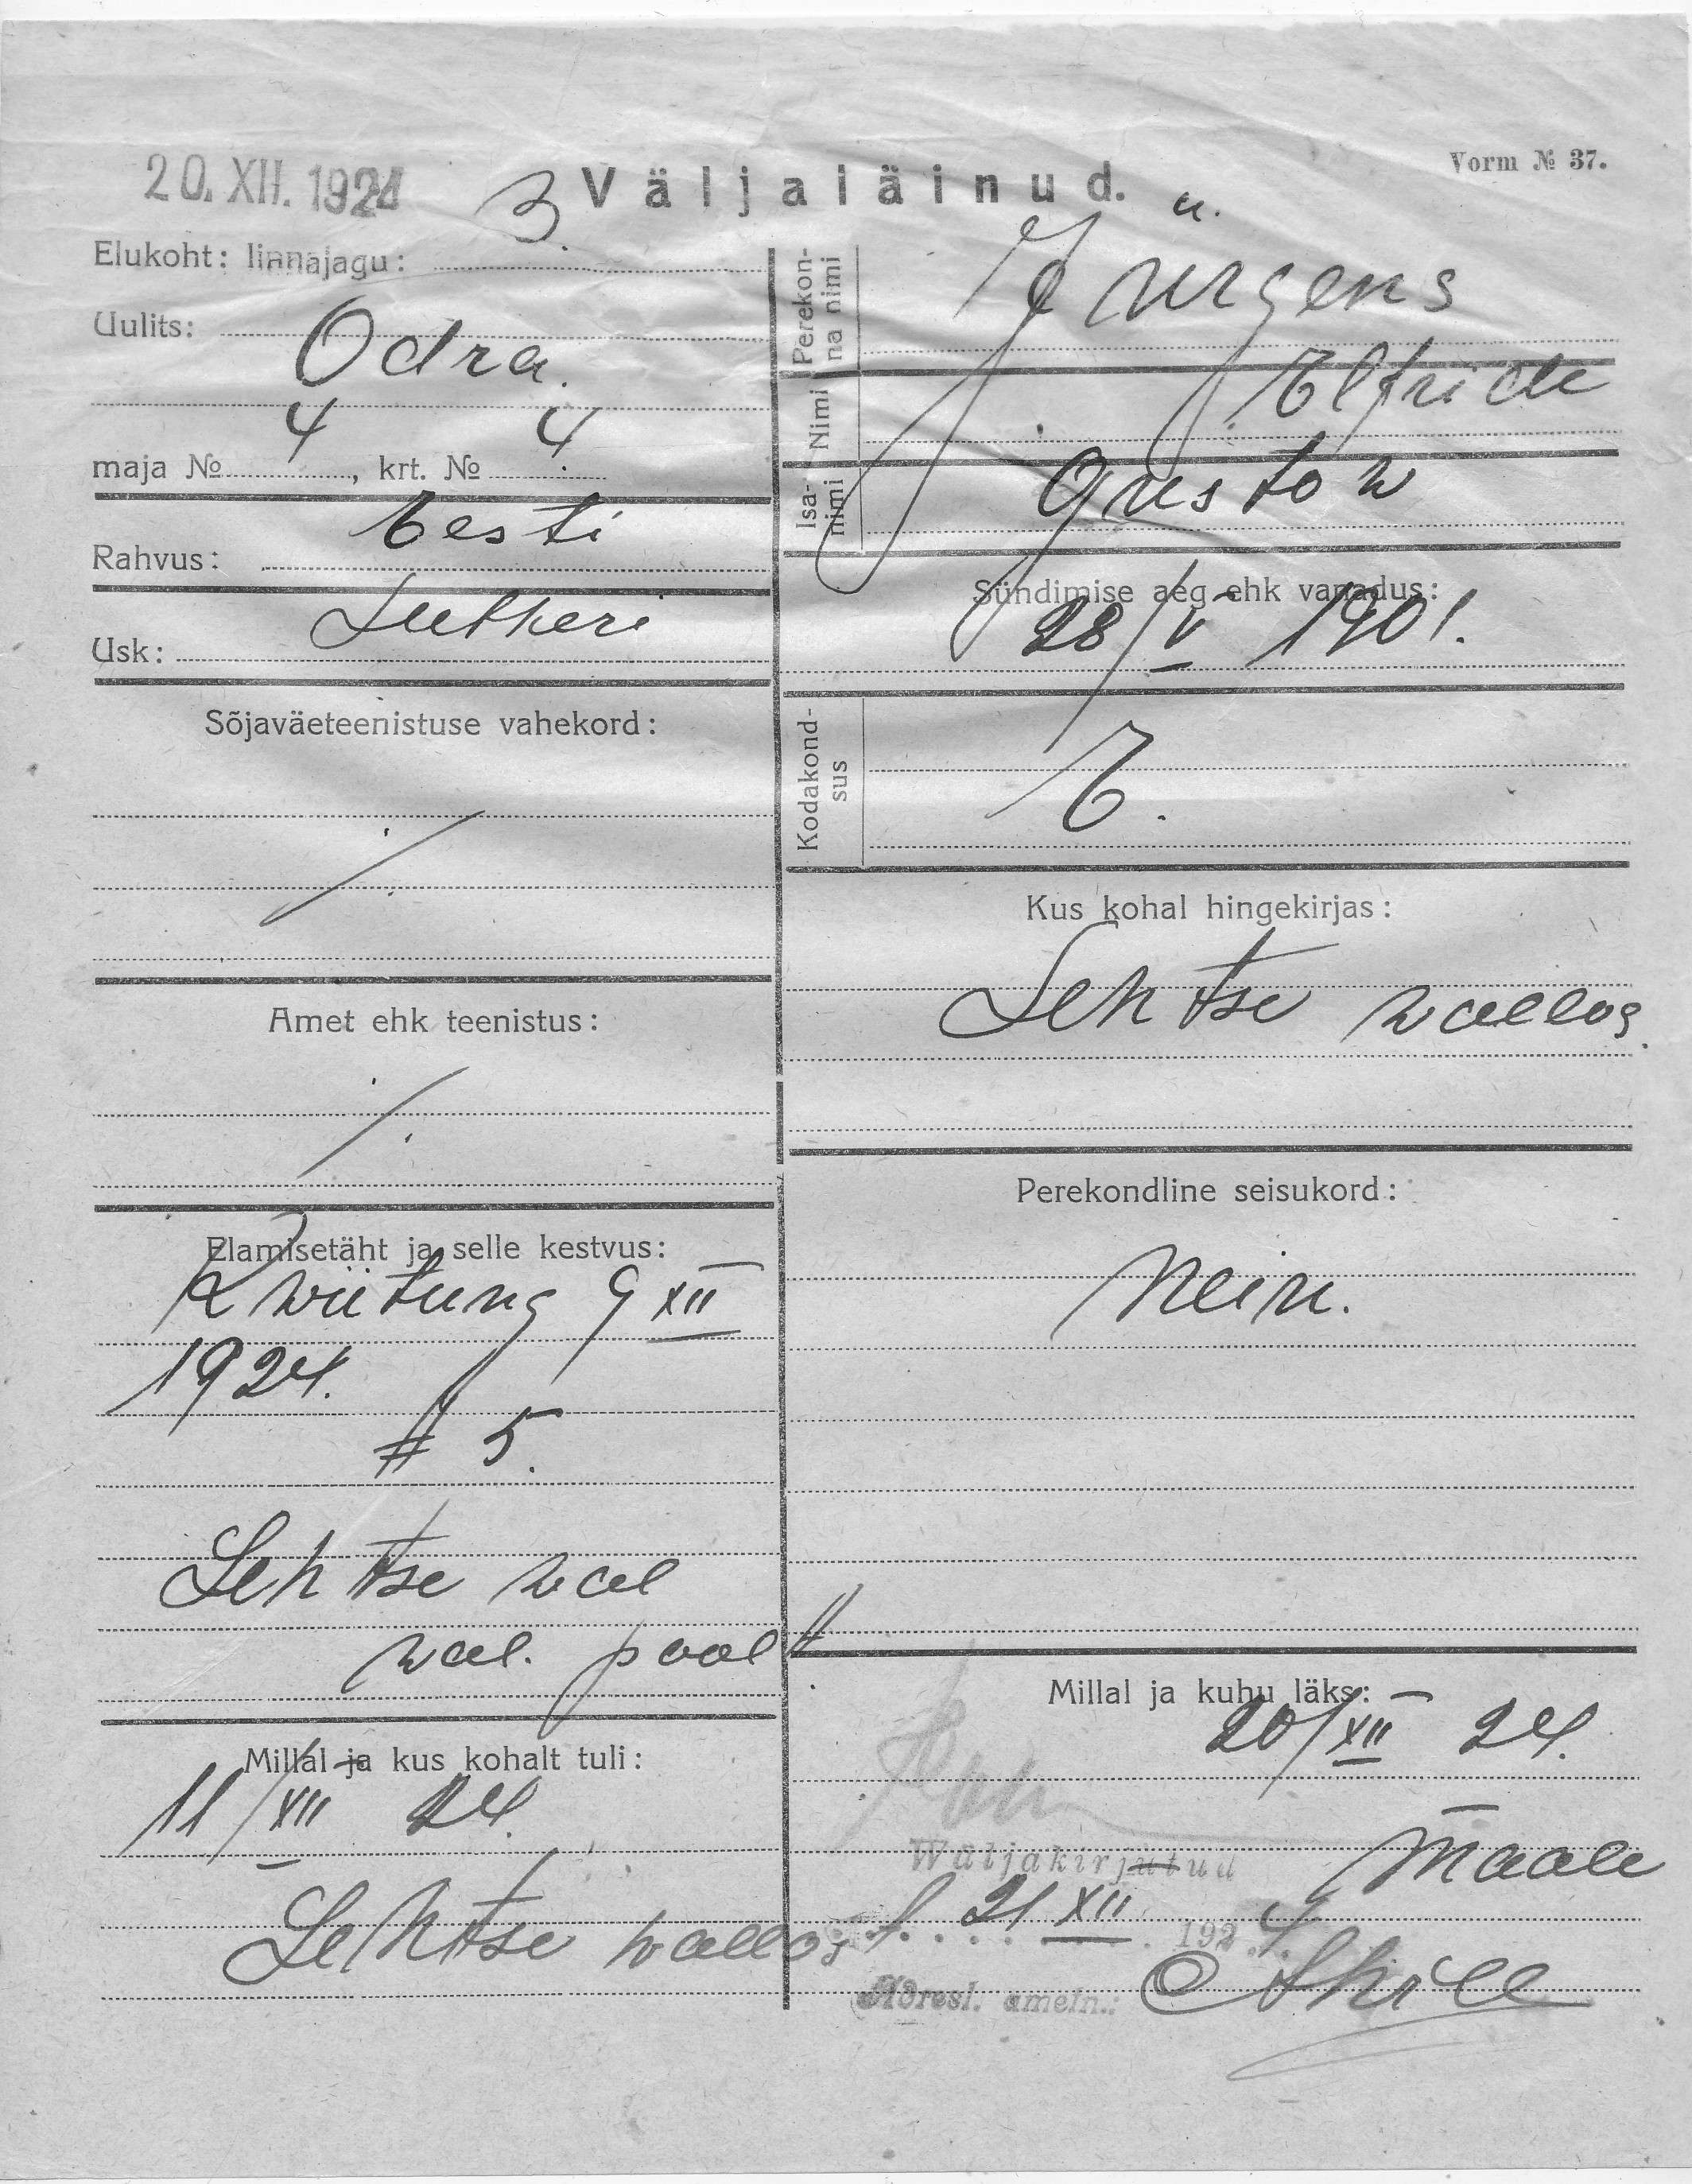 20. XII. 1924
Väljaläinud.
Vorm № 37.
3.
Elukoht: linnajagu:
Uulits: Odra.
maja № 4, krt. № 4
Rahvus: Eesti
Usk: Lutheri
Sõjaväeteenistuse vahekord:
/.
Amet ehk teenistus:
/.
Elamisetäht ja selle kestvus:
Kwiitung 9 XII
1924.
# 5.
Lehtse wal
wal. poolt
Millal ja kus kohalt tuli:
11/XII 24.
Lehtse wallos
Perekonna nimi Jürgens
Nimi Elfride
Isanimi Gustow
Sündimise aeg ehk vanadus:
28/V 1901.
Kodakondsus E.
Kus kohal hingekirjas:
Lehtse wallos.
Perekondline seisukord:
Neiu.
Millal ja kuhu läks:
20/XII 24.
Maale
Wäljakirjutud
21 XII 1924.
Adresl. ametn.: